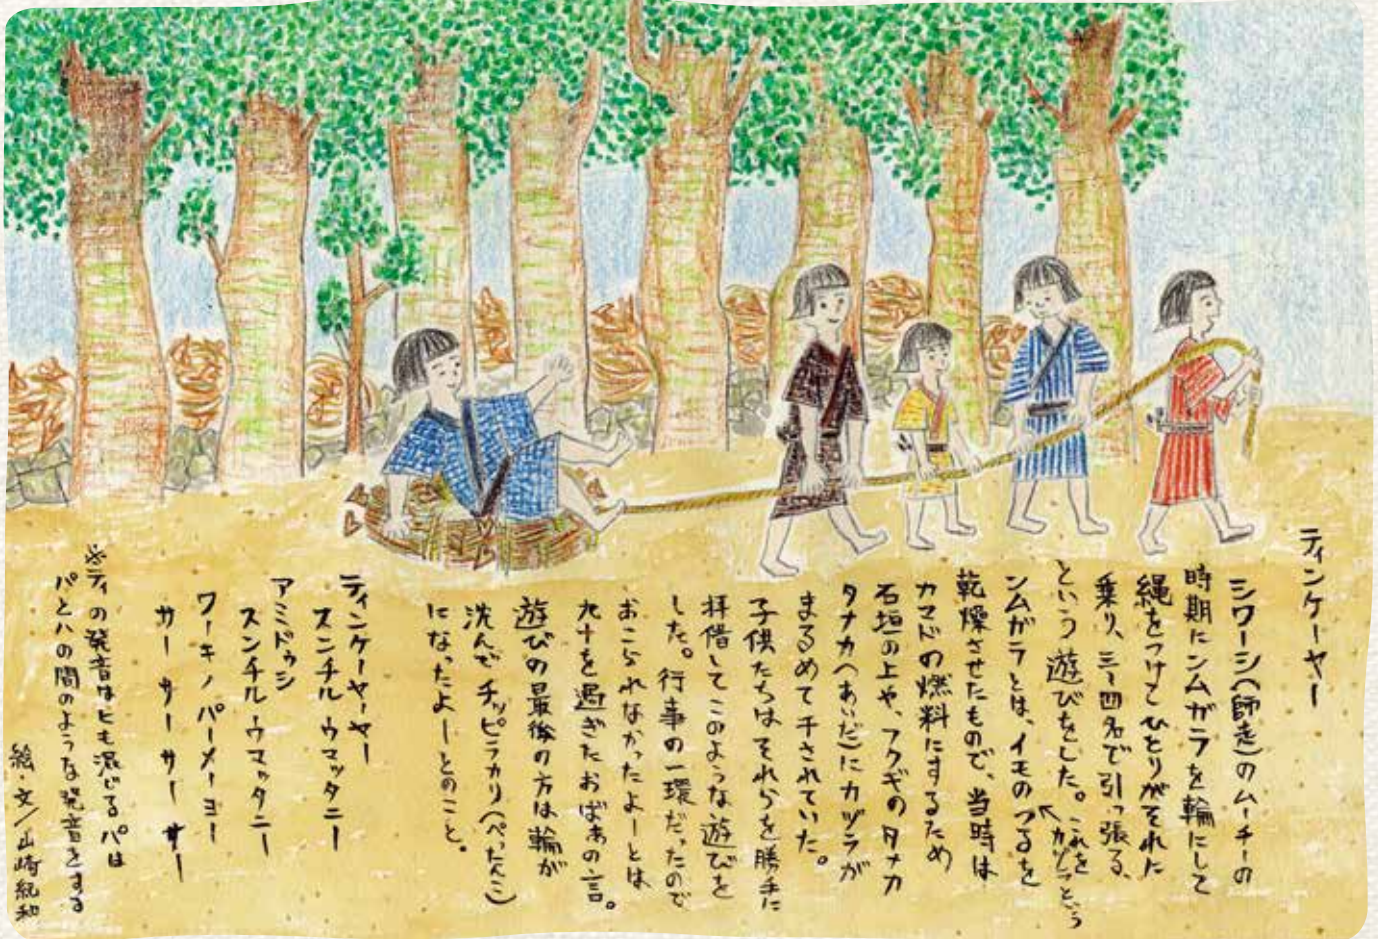 ティンケーヤー
シワーシ(師走)のムーチーの
時期にンムガラを輪にして
縄をつけてひとりがそれに
乗り、三〜四名で引っ張る、
という遊びをした。
ンムガラとは、イモのつるを
これを
カヅラという
乾燥させたもので、当時は
カマドの燃料にするため
石垣の上や、フクギのタナカ
タナカ(あいだ)にカヅラが
まるめて干されていた。
子供たちはそれらを勝手に
拝借してこのような遊びを
した。行事の一環だったので
おこられなかったよーとは
九十を過ぎたおばあの言。
遊びの最後の方は輪が
沈んでチッピラカリ(ぺったんこ)
になったよーとのこと。
ティンケーヤーヤー
スンチル ウマッタニー
アミドゥシ
スンチル ウマッタニー
ワーキノパーメーヨー
サー サー サー サー
※ティの発音はヒも混じるパは
パとハの間のような発音をする
絵・文/山崎紀和